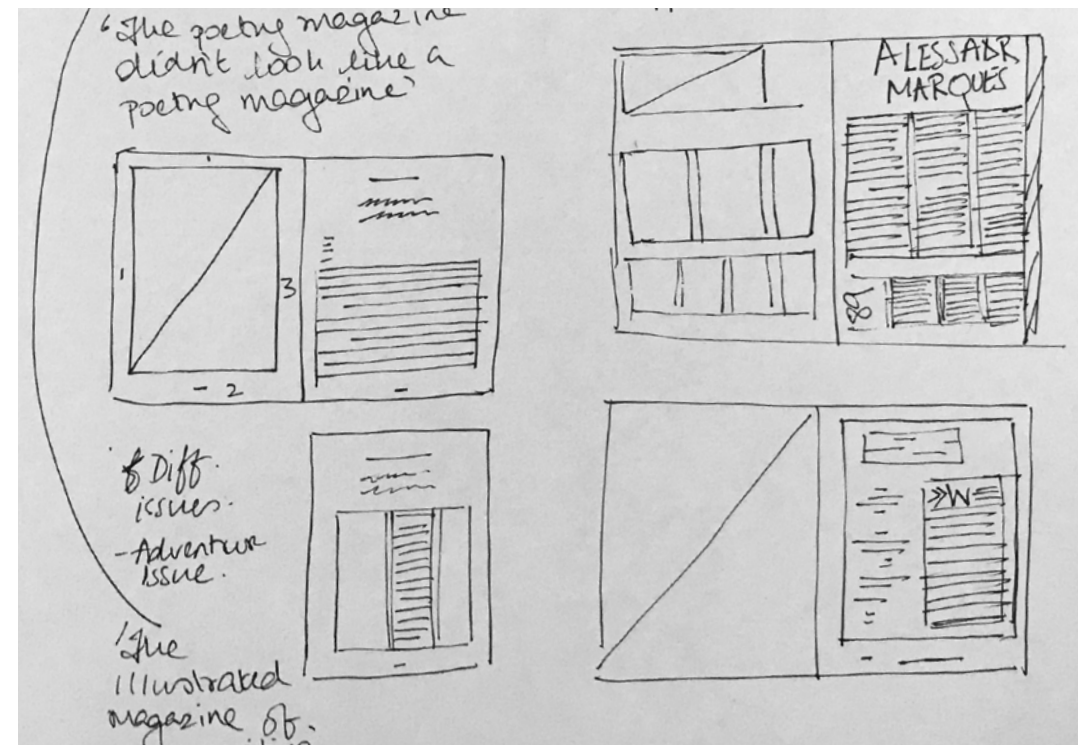 'The poetry magazine
didn't look like a
poetry magazine'
ALESSADR
MARQUES
1
3
2
189
Diff.
issues.
- Adventur
issue.
>>W
'The
Illustrated
magazine of.